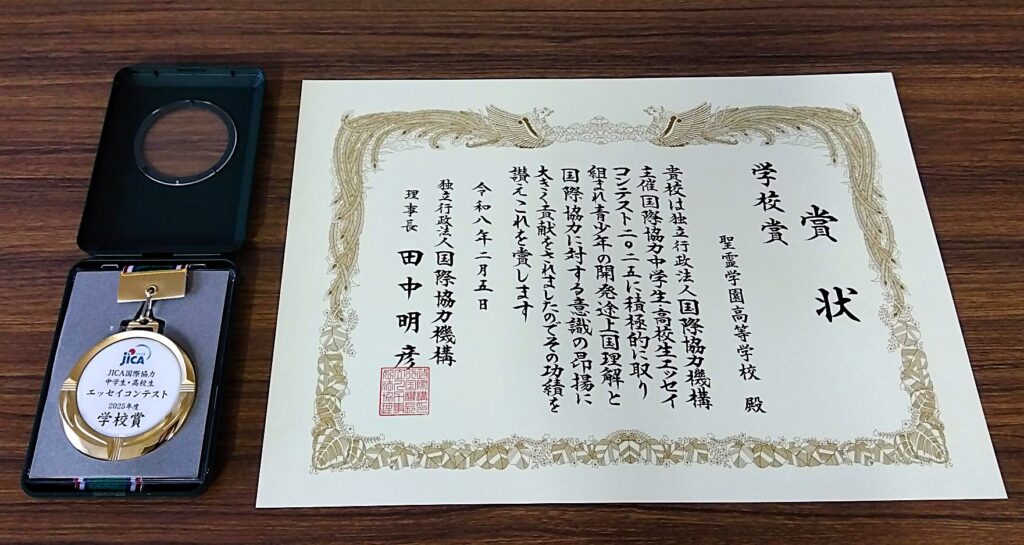 賞状
学校賞
聖霊学園高等学校 殿
貴校は独立行政法人国際協力機構
主催国際協力中学生・高校生エッセイ
コンテスト二〇二五に積極的に取り
組まれ青少年の開発途上国理解と
国際協力に対する意識の昂揚に
大きく貢献をされましたのでその功績を
讃えこれを賞します
令和八年二月五日
独立行政法人国際協力機構
理事長 田中明彦
JICA
JICA国際協力
中学生・高校生
エッセイコンテスト
2025年度
学校賞